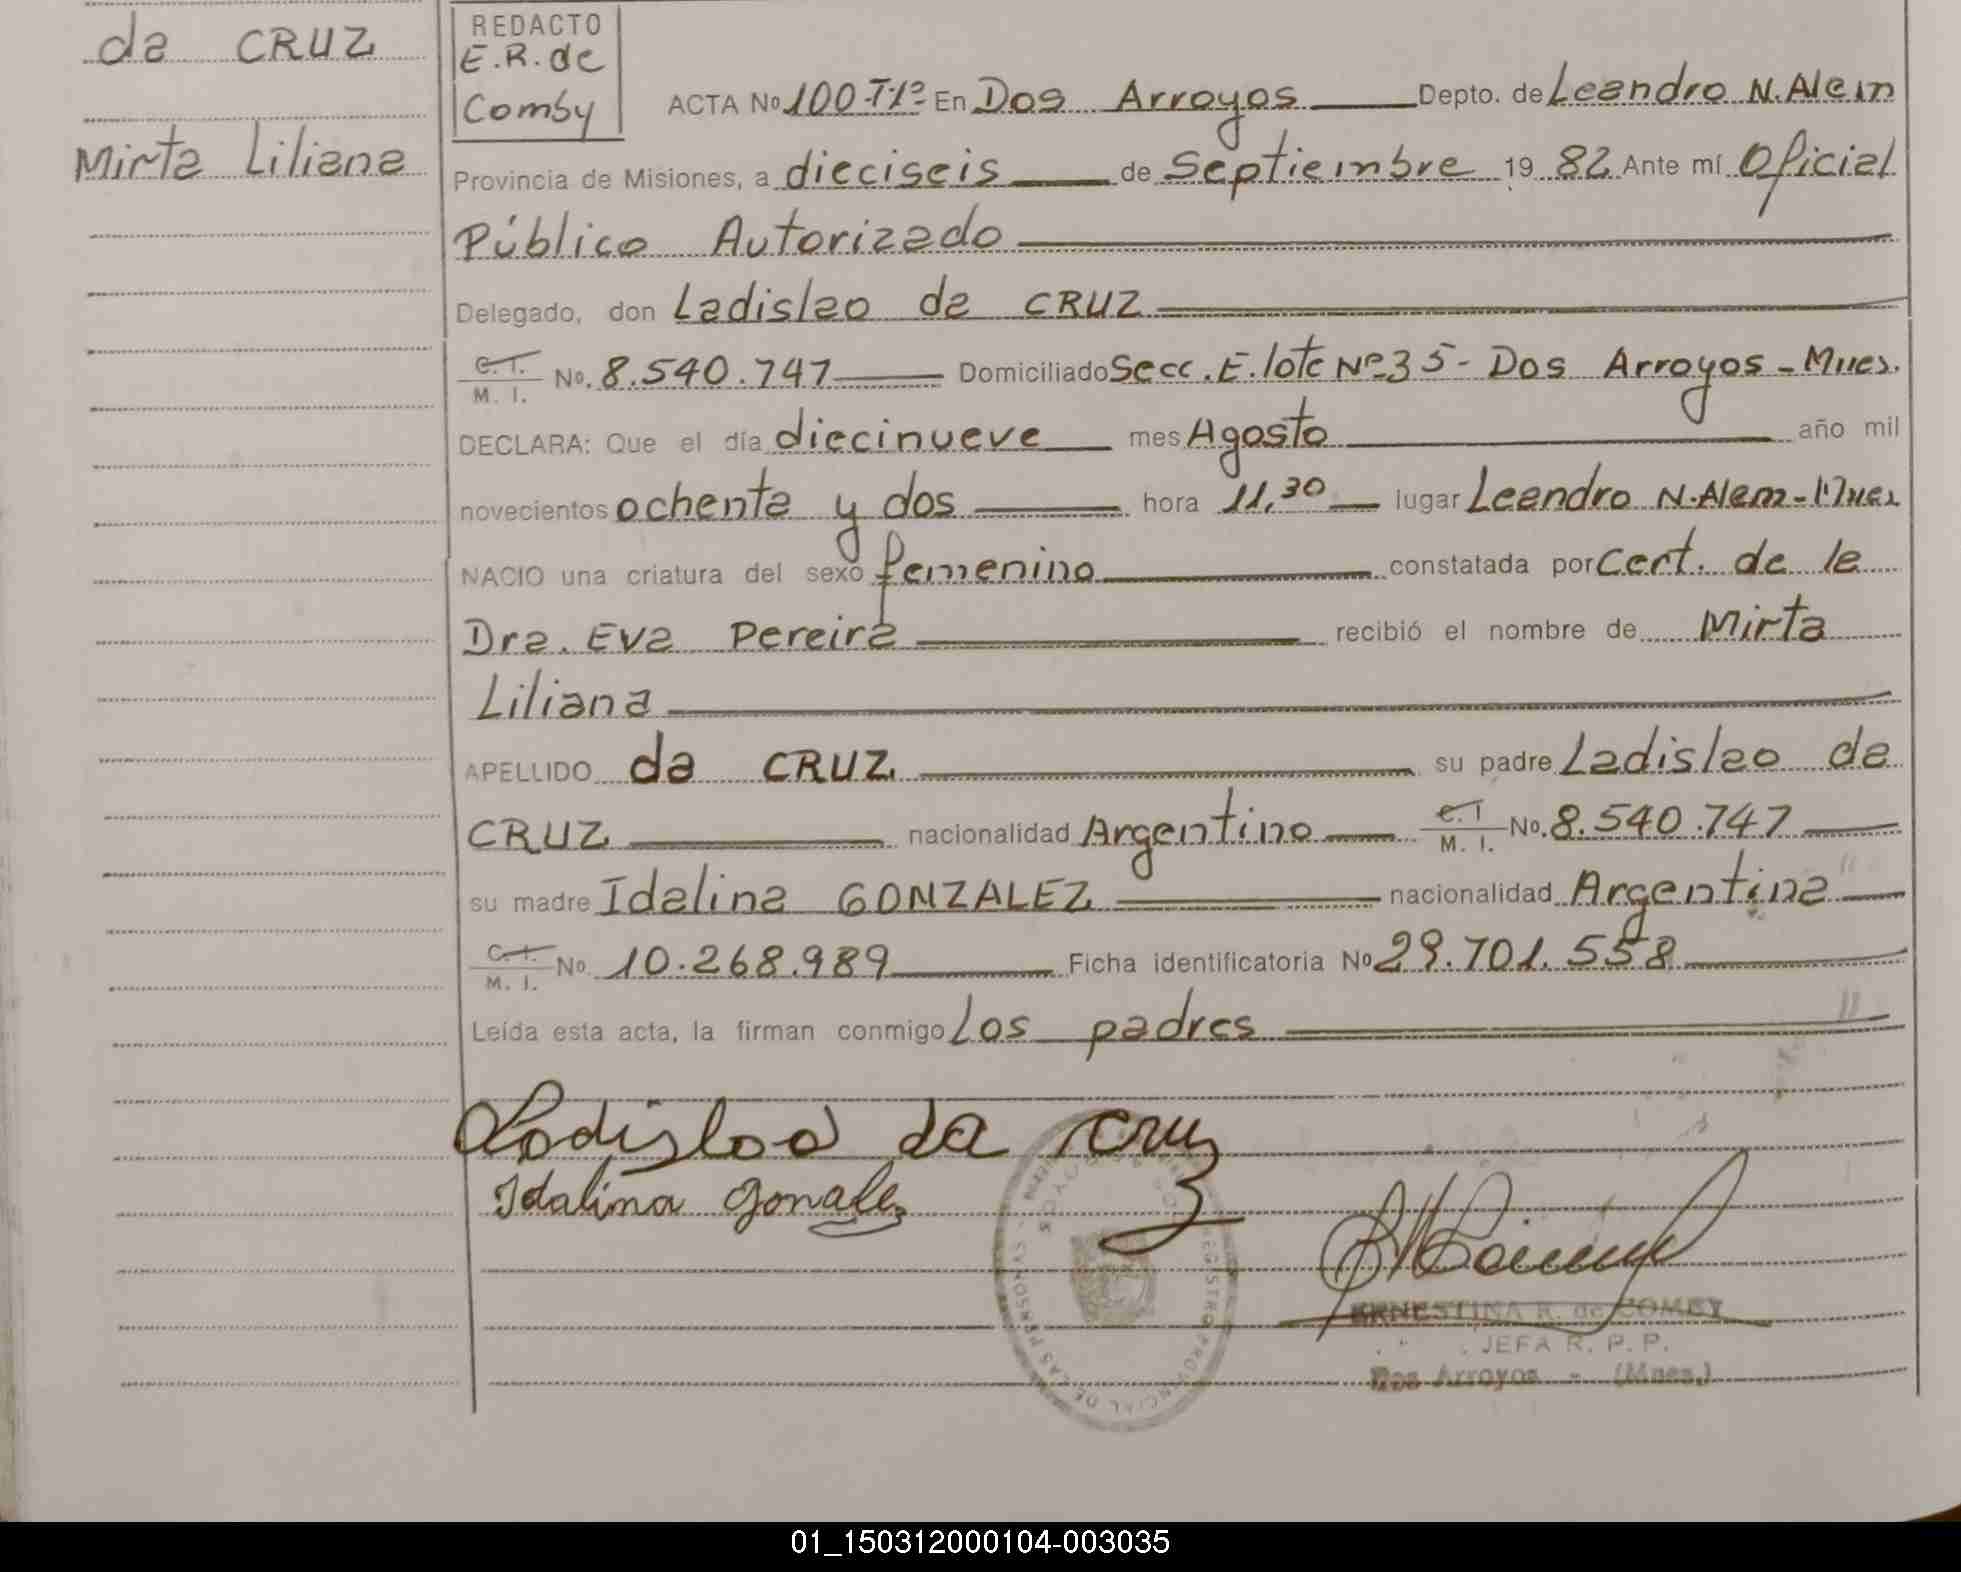 da CRUZ
Mirta Liliana
REDACTO
E.R. de
Comby
ACTA No 100-Tº1º En Dos Arroyos Depto. de Leandro N. Alem
Provincia de Misiones, a dieciseis de Septiembre 19 82 Ante mí Oficial
Público Autorizado
Delegado, don Ladislao da CRUZ
C.I.
M. I. No. 8.540.747 Domiciliado Secc. E. lote Nº 35 - Dos Arroyos - Mnes.
DECLARA: Que el día diecinueve mes Agosto año mil
novecientos ochenta y dos hora 11,30 lugar Leandro N. Alem - Mnes
NACIO una criatura del sexo femenino constatada por Cert. de la
Dra. Eva Pereira recibió el nombre de Mirta
Liliana
APELLIDO da CRUZ su padre Ladislao da
CRUZ nacionalidad Argentino C.I
M. I. No. 8.540.747
su madre Idalina GONZALEZ nacionalidad Argentina
C.I.
M. I. No 10.268.989 Ficha identificatoria No 29.701.558
Leída esta acta, la firman conmigo Los padres
Ladislao da cruz
Idalina Gonzalez
ERNESTINA R. de COMBY
JEFA R. P. P.
Dos Arroyos - (Mnes.)
REGISTRO PROVINCIAL DE LAS PERSONAS
01_150312000104-003035